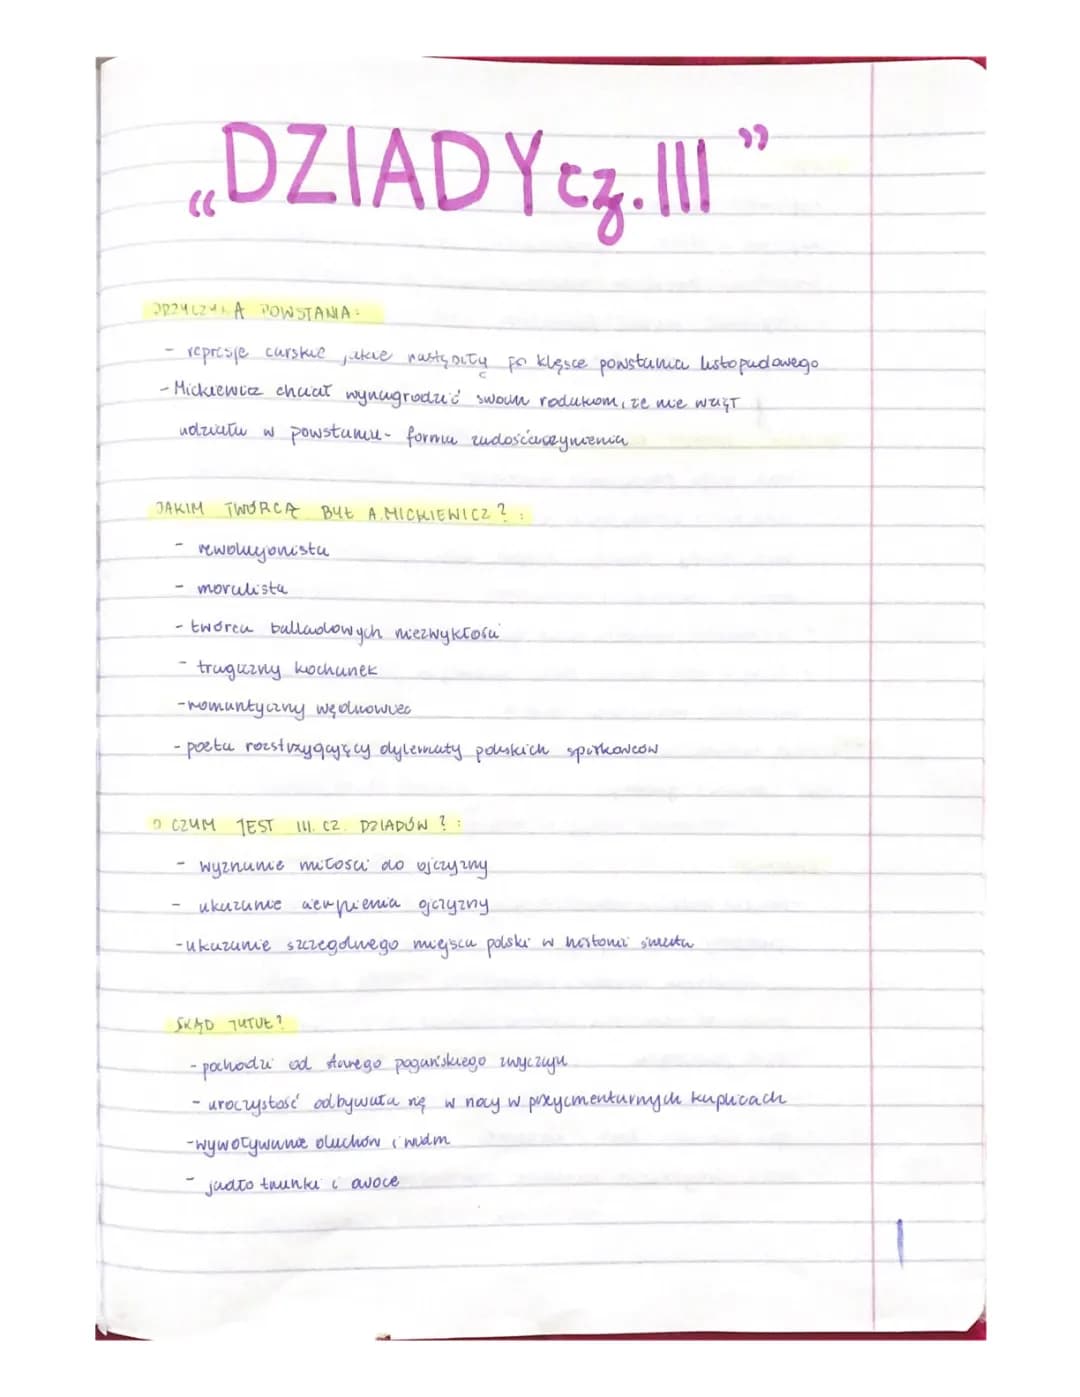 „DZIADY cz. III”
PRZYCZYNA POWSTANIA:
- represje carskie jakie nastąpiły po klęsce powstania listopadowego
- Mickiewicz chciał wynagrodzić swoim rodakom, że nie wziął
udziału w powstaniu - forma zadośćuczynienia
JAKIM TWÓRCĄ BYŁ A. MICKIEWICZ? :
- rewolucjonista
- moralista
- twórca balladowych niezwykłości
- tragiczny kochanek
- romantyczny wędrowiec
- poeta rozstrzygający dylematy polskich spiskowców
O CZYM JEST III. CZ. DZIADÓW? :
- wyznanie miłości do ojczyzny
- ukazanie cierpienia ojczyzny
- ukazanie szczególnego miejsca polski w historii świata
SKĄD TYTUŁ?
- pochodzi od starego pogańskiego zwyczaju
- uroczystość odbywała się w nocy w przycmentarnych kaplicach
- wywoływanie duchów i widm
- jadło trunki i owoce
1